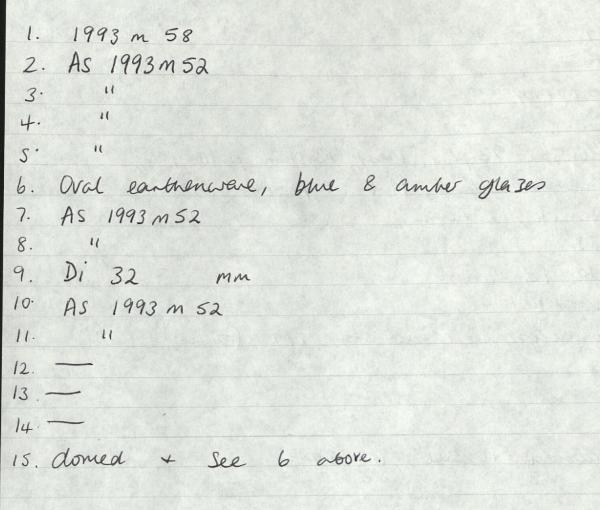 1. 1993 m 58
2. As 1993 m 52
3. "
4. "
5. "
6. Oval earthenware, blue & amber glazes
7. As 1993 m 52
8. "
9. Di 32 mm
10. As 1993 m 52
11. "
12. —
13. —
14. —
15. domed + See 6 above.